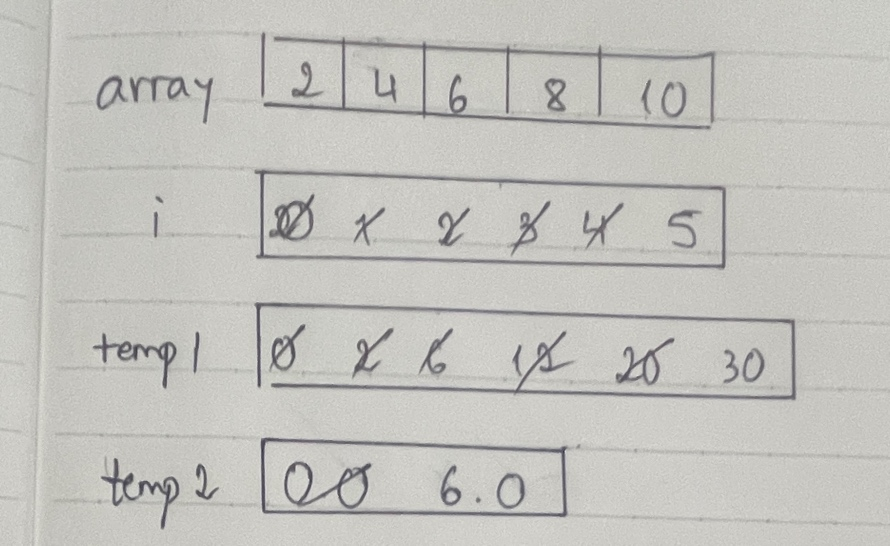 array 2 4 6 8 10
i 0 1 2 3 4 5
temp1 0 2 6 12 20 30
temp2 00 6.0